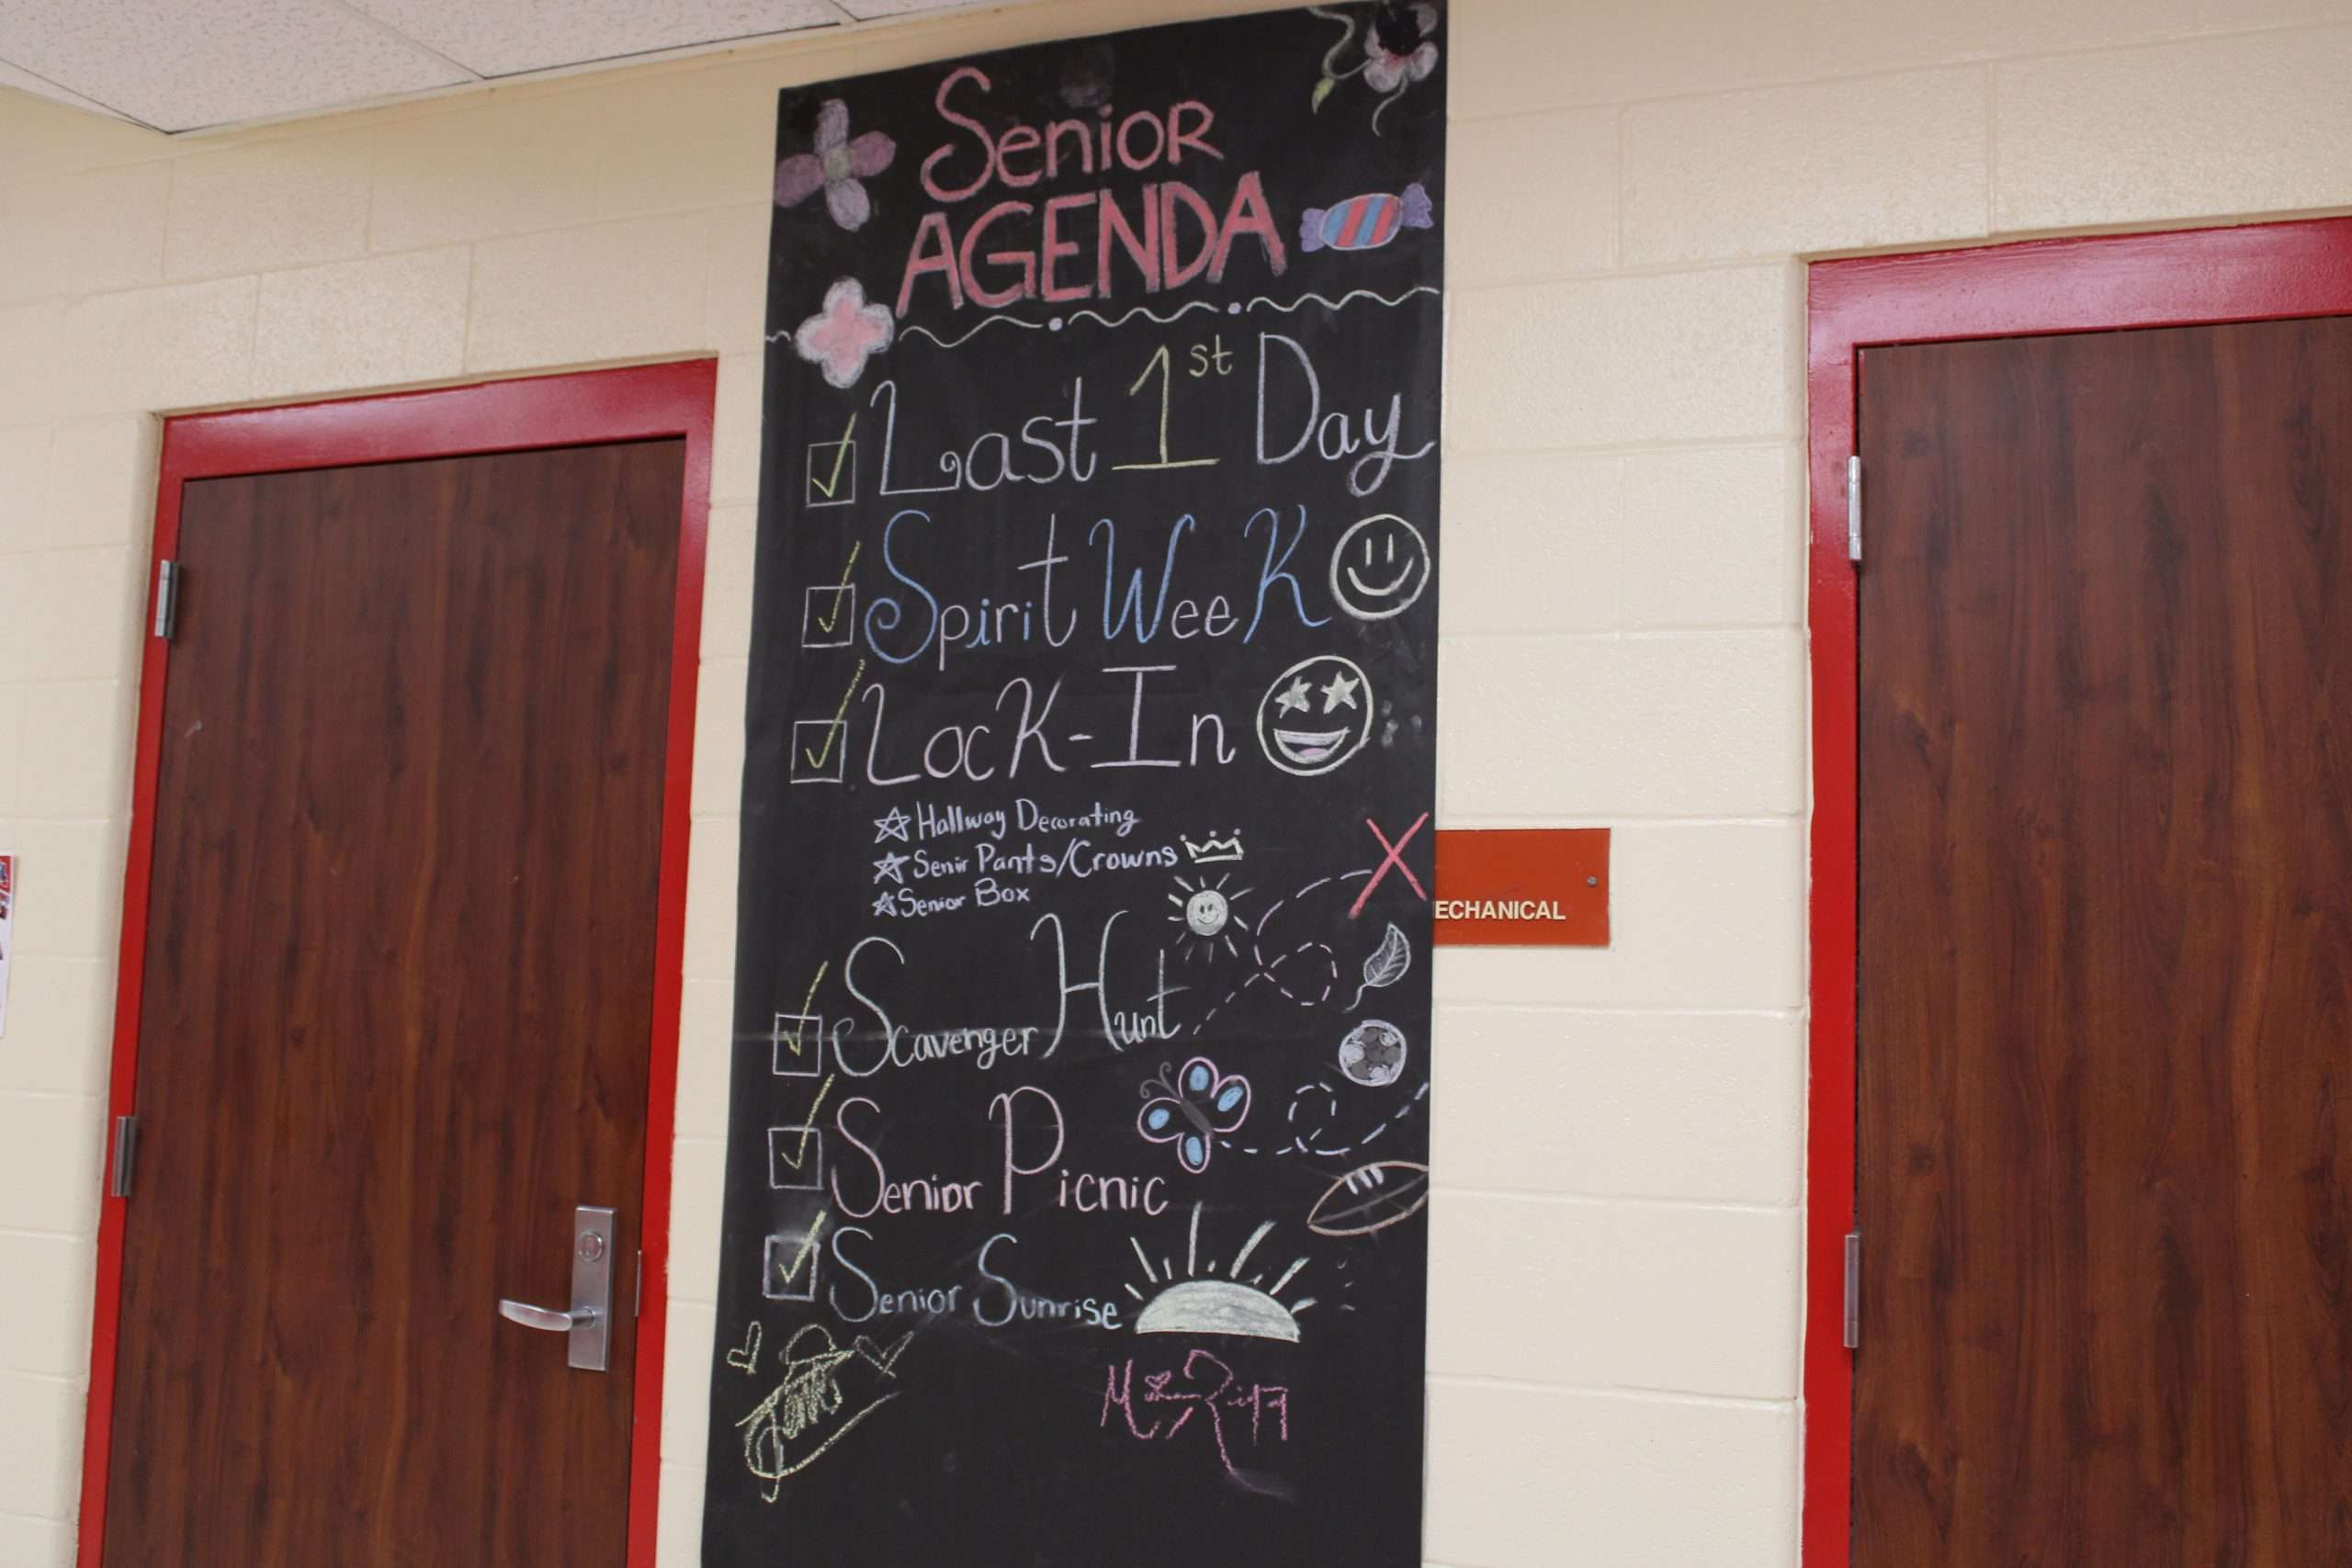 Senior
AGENDA
Last 1st Day
Spirit Week
Lock-In
Hallway Decorating
Senir Pants/Crowns
Senior Box
ECHANICAL
Scavenger Hunt
Senior Picnic
Senior Sunrise